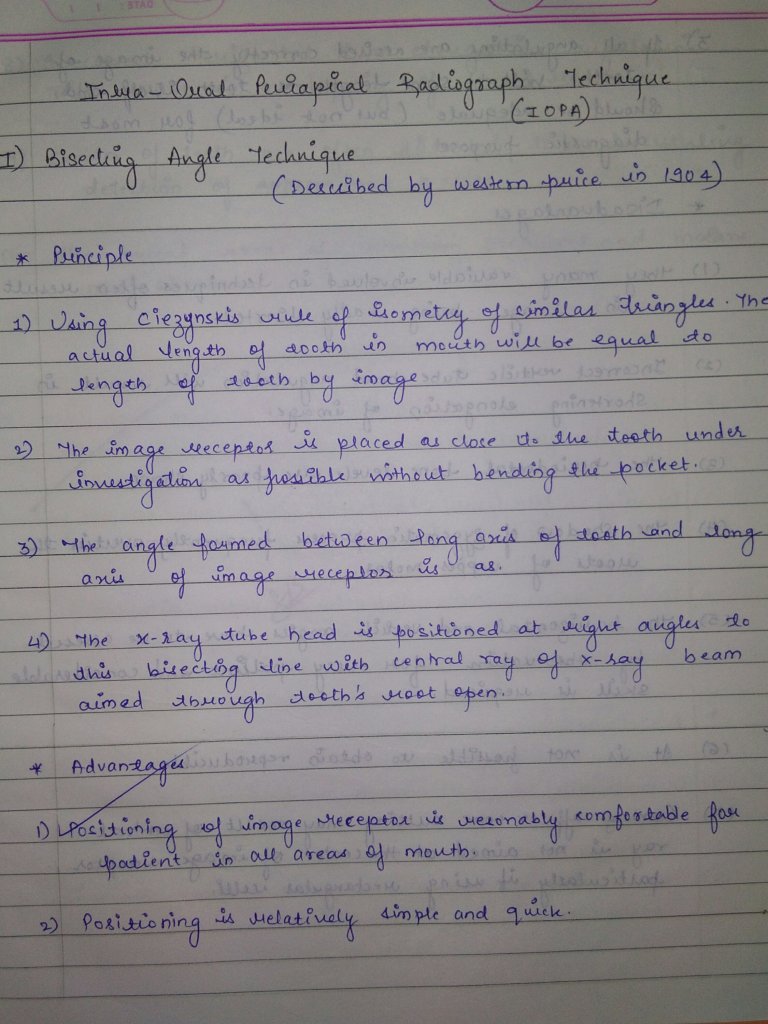 Intra-Oral Periapical Radiograph Technique
(IOPA)
I) Bisecting Angle Technique
(Described by western price in 1904)
* Principle
1) Using Ciezynskis rule of isometry of similar triangles. The
actual length of tooth in mouth will be equal to
length of tooth by image
2) The image receptor is placed as close to the tooth under
investigation as possible without bending the pocket.
3) The angle formed between long axis of tooth and long
axis of image receptor is as.
4) The x-ray tube head is positioned at right angles to
this bisecting line with central ray of x-ray beam
aimed through tooth's root open.
* Advantages
1) Positioning of image receptor is resonably comfortable for
patient in all areas of mouth.
2) Positioning is relatively simple and quick.